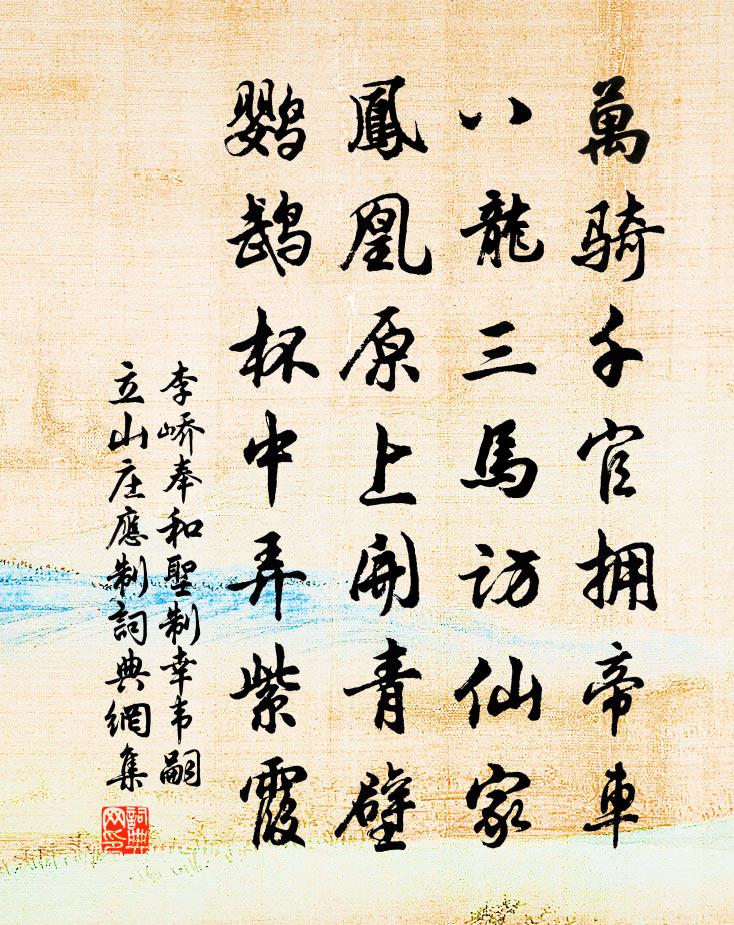 萬騎千官拥帝車
八龍三馬訪仙家
鳳凰原上開青壁
鹦鹉杯中弄紫霞
李嶠奉和聖制幸韦嗣
立山庄應制詞典網集
詞典